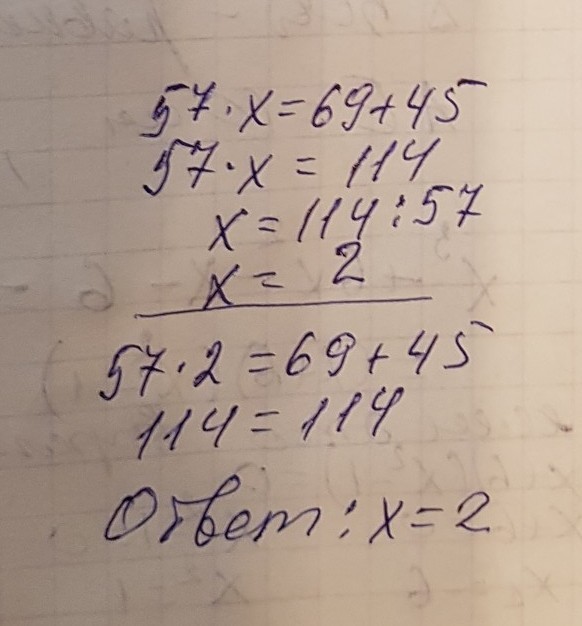 57·x=69+45
57·x=114
x=114:57
x=2
57·2=69+45
114=114
Ответ: x=2